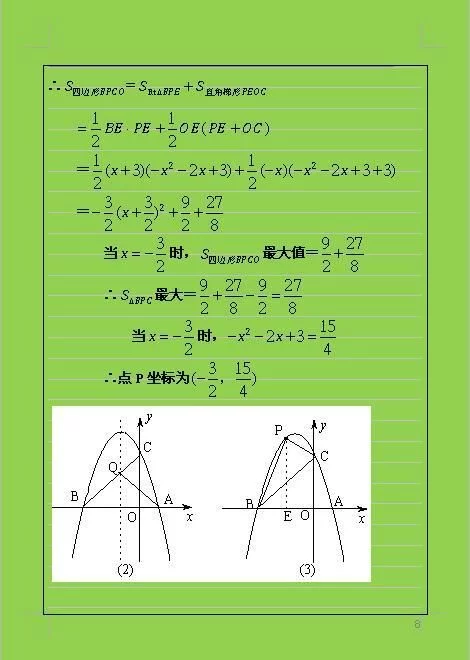 ∴ S四边形BPCO = SRt△BPE + S直角梯形PEOC
= 1/2 BE · PE + 1/2 OE(PE + OC)
= 1/2 (x + 3)(−x² − 2x + 3) + 1/2 (−x)(−x² − 2x + 3 + 3)
= −3/2 (x + 3/2)² + 9/2 + 27/8
当 x = −3/2 时，S四边形BPCO 最大值 = 9/2 + 27/8
∴ S△BPC 最大 = 9/2 + 27/8 − 9/2 = 27/8
当 x = −3/2 时，−x² − 2x + 3 = 15/4
∴点 P 坐标为(−3/2， 15/4)
y
C
Q
B
A
O
x
(2)
P
y
C
B
E
O
A
x
(3)
8